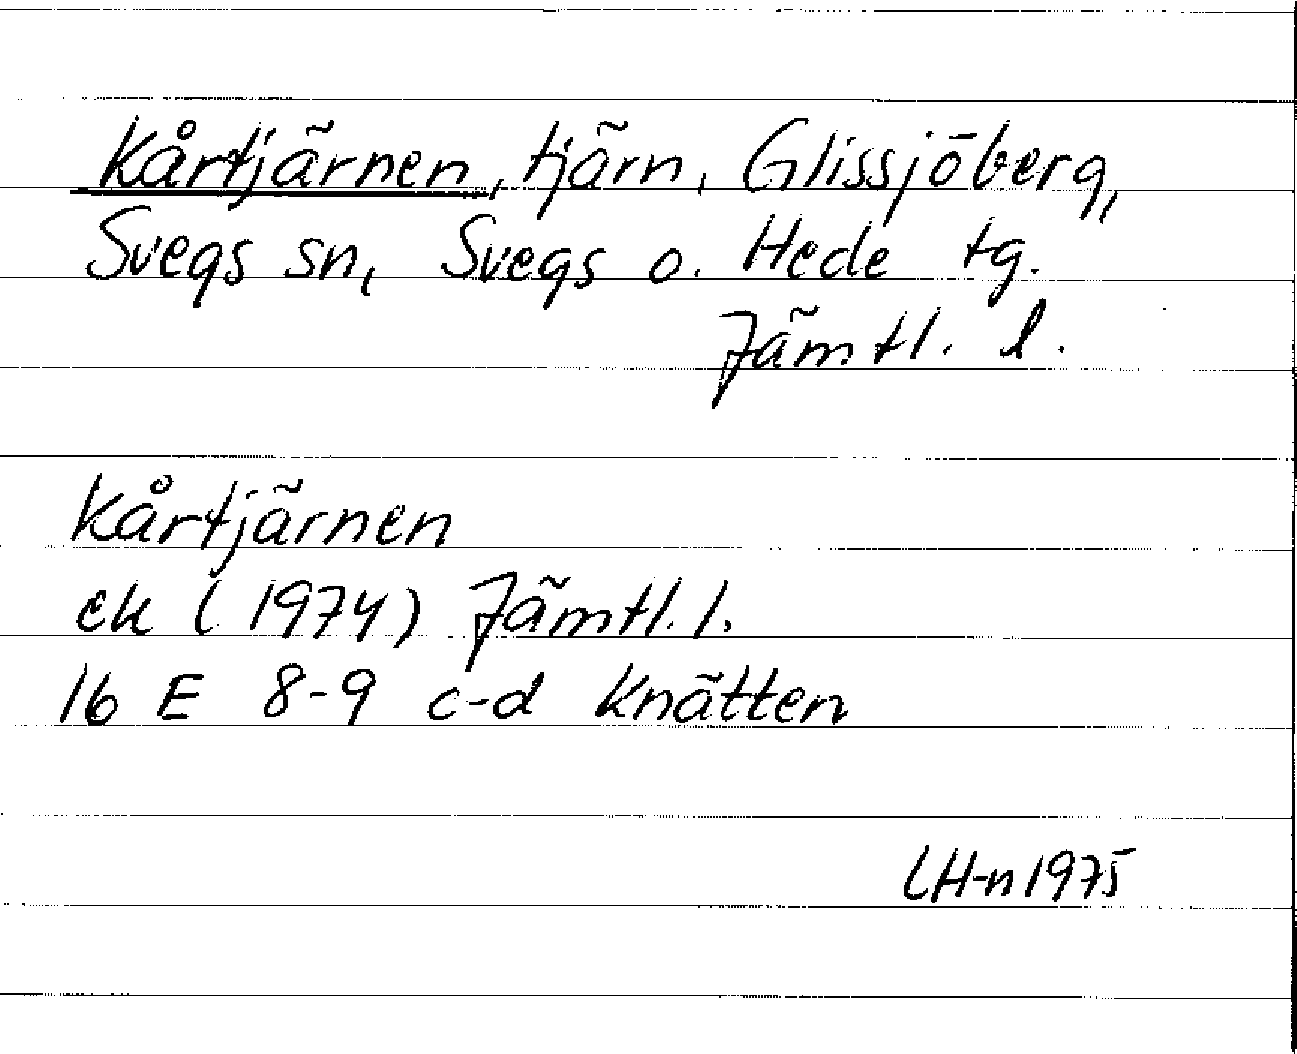 Kårtjärnen, tjärn, Glissjöberg,
Svegs sn, Svegs o. Hede tg.
Jämtl. l.
Kårtjärnen
ek (1974) Jämtl. l.
16 E 8-9 c-d Knätten
LH-n 1975